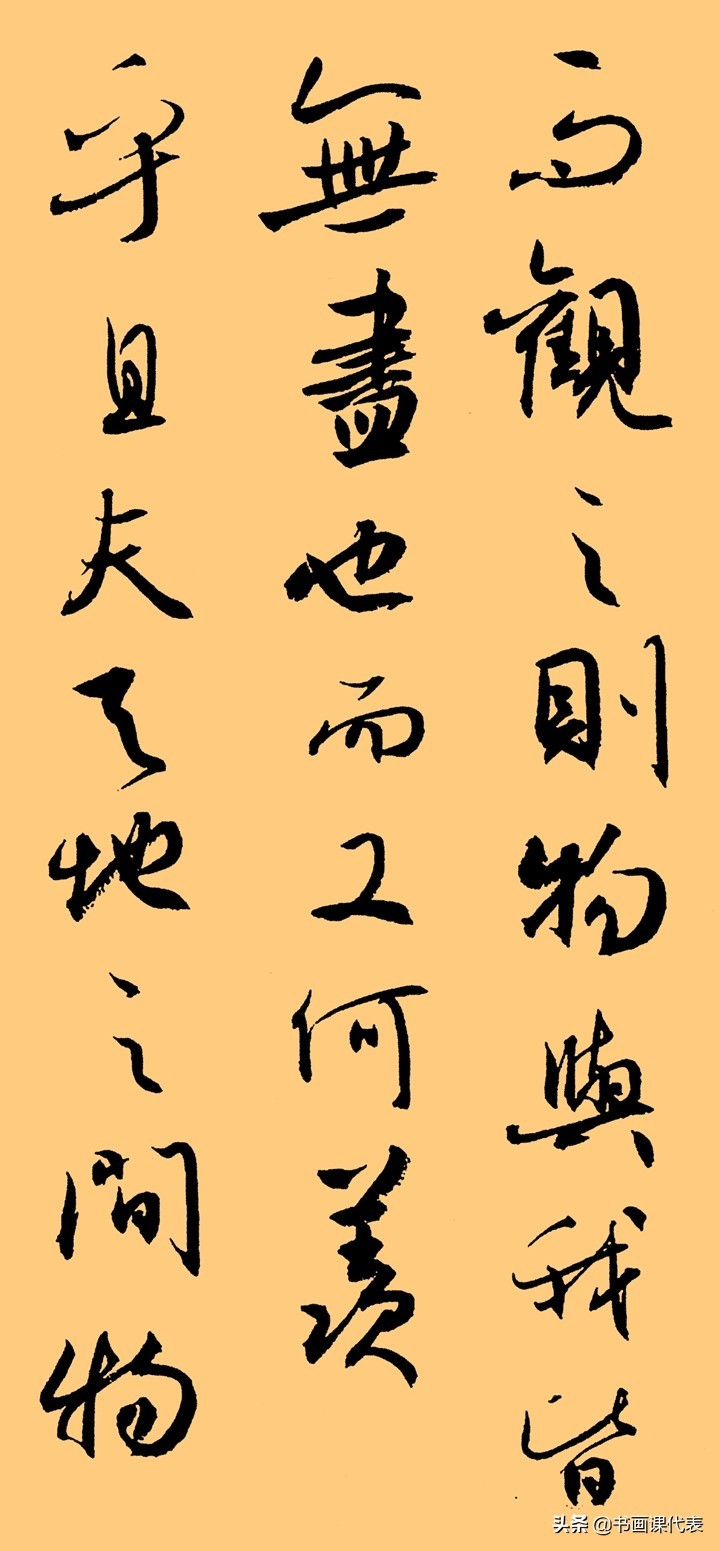 而觀之則物與我皆
無盡也而又何羨
乎且夫天地之間物
头条 @书画课代表